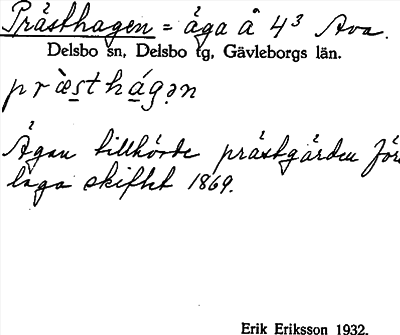 Prästhagen = äga å 4³ Ava.
Delsbo sn, Delsbo tg, Gävleborgs län.
præ̀sthágən
Ägan tillhörde prästgården före
laga skiftet 1869.
Erik Eriksson 1932.